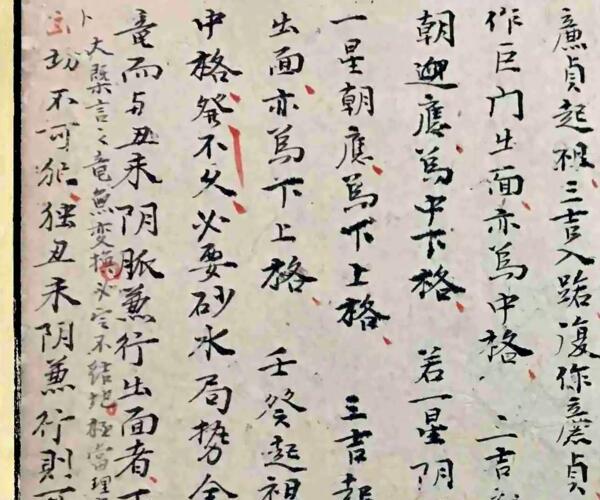 廉貞起祖三吉入路復作廉貞
作巨门出面亦為中格 二吉
朝迎應為中下格 若一星阴
一星朝應為下上格 三吉起
出面亦為下上格 壬癸起祖
中格發不久必要砂水局势全
竜而与丑未阴脈兼行出面者
大槩言之竜無変换必定不结地極當理
玄劫不可犯独丑未阴兼行則